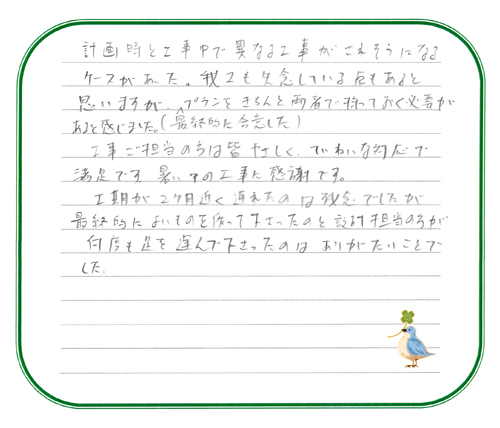 計画時と工事中で異なる工事がされそうになる
ケースがあった。我々も失念している点もあると
思いますが、プランをきちんと両者で持っておく必要が
あると感じました。(最終的に合意した)
工事ご担当の方は皆やさしく、ていねいな対応で
満足です。暑い中の工事に感謝です。
工期が2ヶ月近く遅れたのは残念でしたが
最終的によいものを作って下さったのと設計担当の方が
何度も足を運んで下さったのはありがたいことで
した。